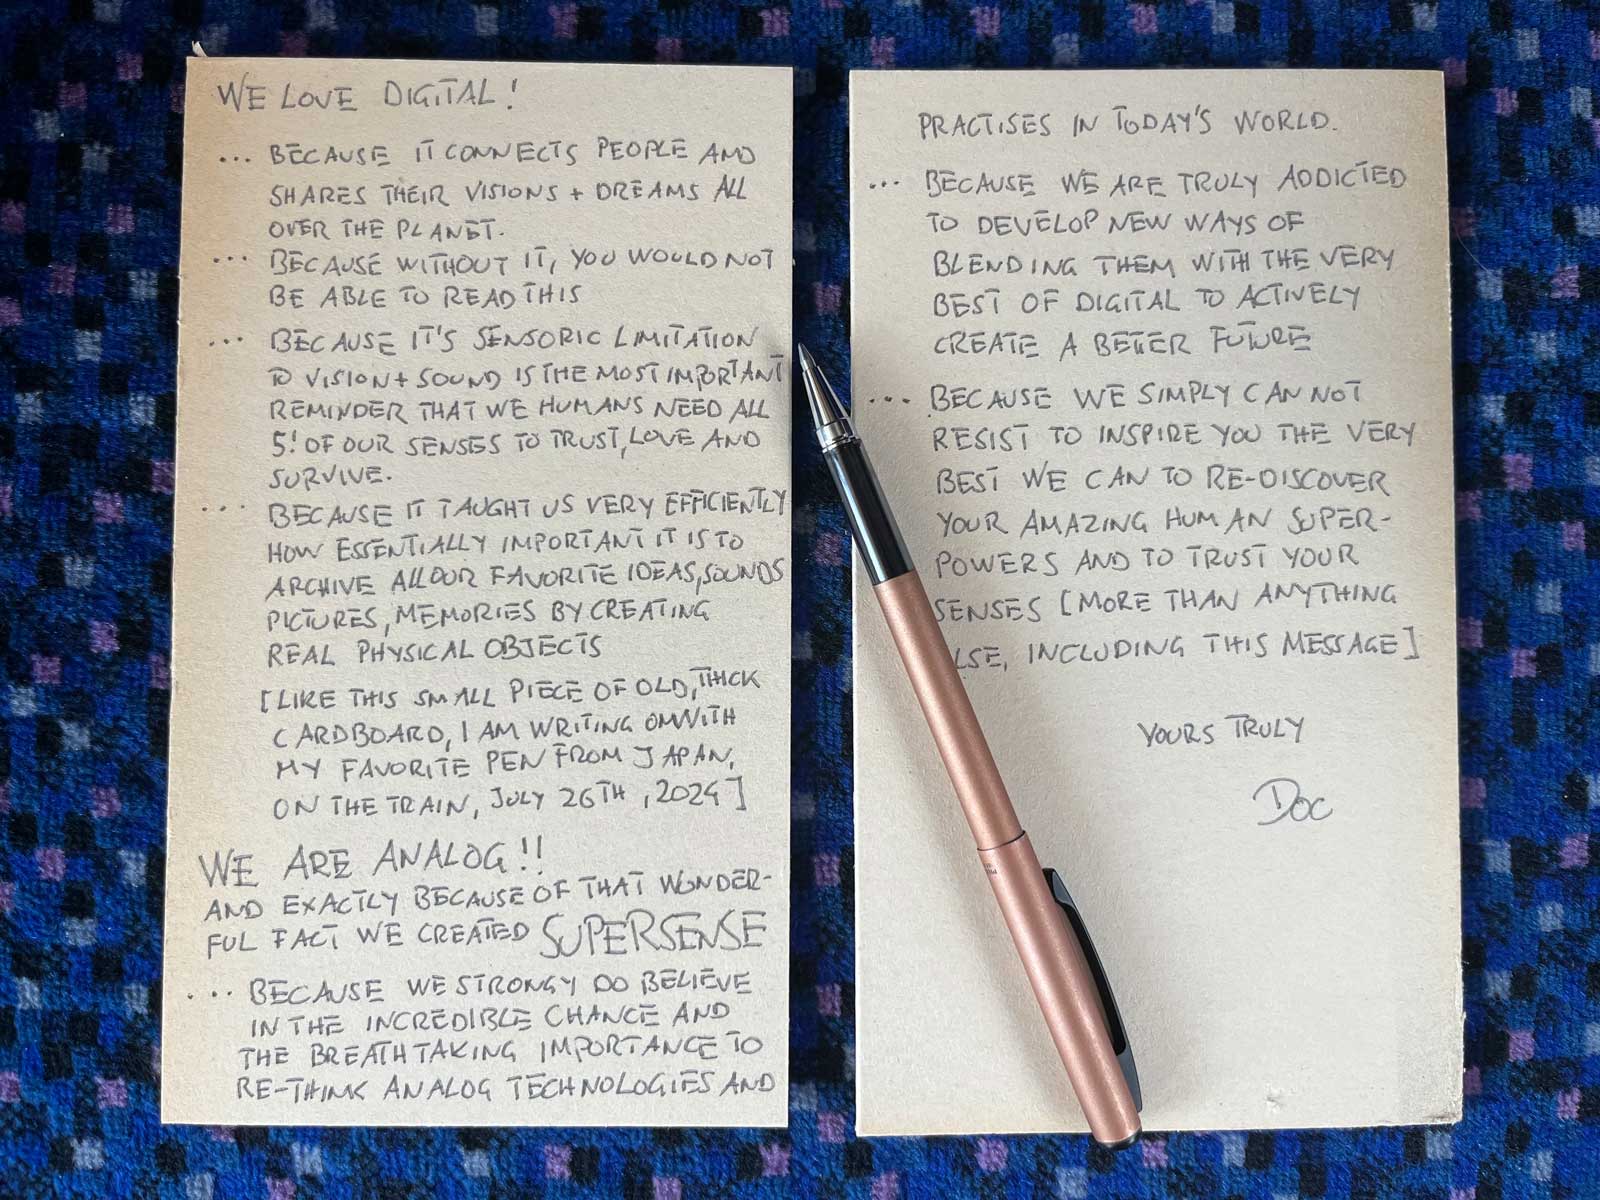 WE LOVE DIGITAL!
... BECAUSE IT CONNECTS PEOPLE AND
SHARES THEIR VISIONS + DREAMS ALL
OVER THE PLANET.
... BECAUSE WITHOUT IT, YOU WOULD NOT
BE ABLE TO READ THIS
... BECAUSE IT'S SENSORIC LIMITATION
TO VISION + SOUND IS THE MOST IMPORTANT
REMINDER THAT WE HUMANS NEED ALL
5! OF OUR SENSES TO TRUST, LOVE AND
SURVIVE.
... BECAUSE IT TAUGHT US VERY EFFICIENTLY
HOW ESSENTIALLY IMPORTANT IT IS TO
ARCHIVE ALL OUR FAVORITE IDEAS, SOUNDS
PICTURES, MEMORIES BY CREATING
REAL PHYSICAL OBJECTS
[LIKE THIS SMALL PIECE OF OLD, THICK
CARDBOARD, I AM WRITING ON WITH
MY FAVORITE PEN FROM JAPAN,
ON THE TRAIN, JULY 26TH, 2024]
WE ARE ANALOG!!
AND EXACTLY BECAUSE OF THAT WONDER-
FUL FACT WE CREATED SUPERSENSE
... BECAUSE WE STRONGY DO BELIEVE
IN THE INCREDIBLE CHANCE AND
THE BREATHTAKING IMPORTANCE TO
RE-THINK ANALOG TECHNOLOGIES AND
PRACTISES IN TODAY'S WORLD.
... BECAUSE WE ARE TRULY ADDICTED
TO DEVELOP NEW WAYS OF
BLENDING THEM WITH THE VERY
BEST OF DIGITAL TO ACTIVELY
CREATE A BETTER FUTURE
... BECAUSE WE SIMPLY CAN NOT
RESIST TO INSPIRE YOU THE VERY
BEST WE CAN TO RE-DISCOVER
YOUR AMAZING HUMAN SUPER-
POWERS AND TO TRUST YOUR
SENSES [MORE THAN ANYTHING
LSE, INCLUDING THIS MESSAGE]
YOURS TRULY
DOC